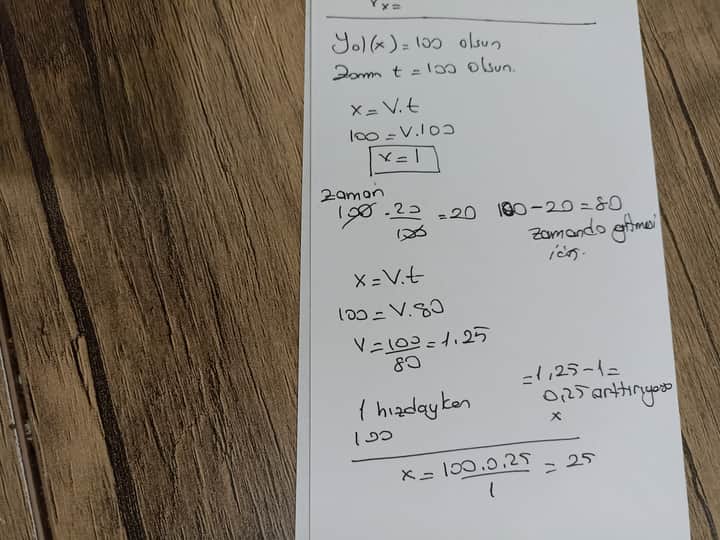 x =
Yol(x) = 100 olsun
Zaman t = 100 olsun.
x = V.t
100 = V.100
x = 1
zaman
100 . 20/100 = 20
100 - 20 = 80
zamanda gitmesi
için.
x = V.t
100 = V.80
V = 100/80 = 1.25
= 1,25 - 1 =
0,25 arttırıyorsa
1 hızdayken
100
x
x = 100.0.25/1 = 25